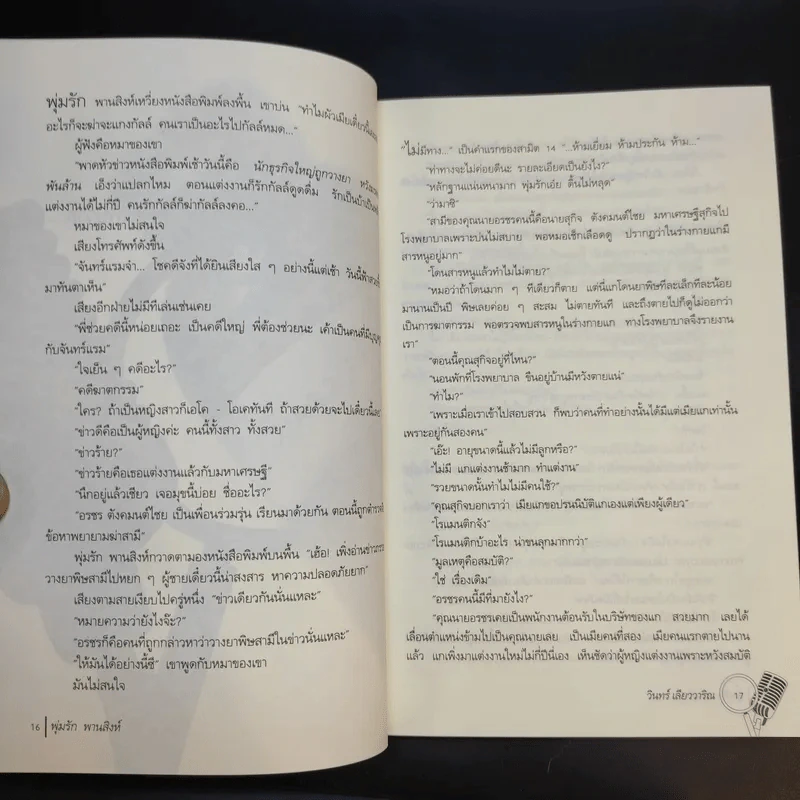 พุ่มรัก พานสิงห์เหวี่ยงหนังสือพิมพ์ลงพื้น เขาบ่น "ทำไมผัวเมียเดี๋ยวนี้
อะไรก็จะฆ่าจะแกงกัลล์ คนเราเป็นอะไรไปกัลล์หมด..."
ผู้ฟังคือหมาของเขา
"พาดหัวข่าวหนังสือพิมพ์เช้าวันนี้คือ นักธุรกิจใหญ่ถูกวางยา
พันล้าน เอ็งว่าแปลกไหม ตอนแต่งงานก็รักกัลล์ดูดดื่ม รักเป็นบ้าเป็น
แต่งงานได้ไม่กี่ปี คนรักกัลล์ก็ฆ่ากัลล์ลงคอ..."
หมาของเขาไม่สนใจ
เสียงโทรศัพท์ดังขึ้น
"จันทร์แรมจ๋า... โชคดีจังที่ได้ยินเสียงใส ๆ อย่างนี้แต่เช้า วันนี้
มาทันตาเห็น"
เสียงอีกฝ่ายไม่มีทีเล่นเช่นเคย
"พี่ช่วยคดีนี้หน่อยเถอะ เป็นคดีใหญ่ พี่ต้องช่วยนะ เค้าเป็นคนที่มี
กับจันทร์แรม"
"ใจเย็น ๆ คดีอะไร?"
"คดีฆาตกรรม"
"ใคร? ถ้าเป็นหญิงสาวก็เอโค - โอเคทันที ถ้าสวยด้วยจะไปเดี๋ยวนี้
"ข่าวดีคือเป็นผู้หญิงค่ะ คนนี้ทั้งสาว ทั้งสวย"
"ข่าวร้าย?"
"ข่าวร้ายคือเธอแต่งงานแล้วกับมหาเศรษฐี"
"นึกอยู่แล้วเชียว เจอมุขนี้บ่อย ชื่ออะไร?"
"อรชร ตังคมนต์ไชย เป็นเพื่อนร่วมรุ่น เรียนมาด้วยกัน ตอนนี้ถูกตำรวจ
ข้อหาพยายามฆ่าสามี"
พุ่มรัก พานสิงห์กวาดตามองหนังสือพิมพ์บนพื้น "เฮ้อ! เพิ่งอ่านข่าว
วางยาพิษสามีไปหยก ๆ ผู้ชายเดี๋ยวนี้น่าสงสาร หาความปลอดภัยยาก"
เสียงตามสายเงียบไปครู่หนึ่ง "ข่าวเดียวกันนั่นแหละ"
"หมายความว่ายังไงจ๊ะ?"
"อรชรก็คือคนที่ถูกกล่าวหาว่าวางยาพิษสามีในข่าวนั่นแหละ"
"ให้มันได้อย่างนี้ซี" เขาพูดกับหมาของเขา
มันไม่สนใจ
16 พุ่มรัก พานสิงห์
"ไม่มีทาง..." เป็นคำแรกของสามิต 14 "...ห้ามเยี่ยม ห้ามประกัน ห้าม..."
"ท่าทางจะไม่ค่อยดีนะ รายละเอียดเป็นยังไง?"
"หลักฐานแน่นหนามาก พุ่มรักเอ๋ย ดิ้นไม่หลุด"
"ว่ามาซิ"
"สามีของคุณนายอรชรคนนี้คือนายสุกิจ ตังคมนต์ไชย มหาเศรษฐีสุกิจไป
โรงพยาบาลเพราะบ่นไม่สบาย พอหมอเช็กเลือดดู ปรากฏว่าในร่างกายแกมี
สารหนูอยู่มาก"
"โดนสารหนูแล้วทำไมไม่ตาย?"
"หมอว่าถ้าโดนมาก ๆ ทีเดียวก็ตาย แต่นี่แกโดนยาพิษทีละเล็กทีละน้อย
มานานเป็นปี พิษเลยค่อย ๆ สะสม ไม่ตายทันที และถึงตายไปก็ดูไม่ออกว่า
เป็นการฆาตกรรม พอตรวจพบสารหนูในร่างกายแก ทางโรงพยาบาลจึงรายงาน
เรา"
"ตอนนี้คุณสุกิจอยู่ที่ไหน?"
"นอนพักที่โรงพยาบาล ขืนอยู่บ้านมีหวังตายแน่"
"ทำไม?"
"เพราะเมื่อเราเข้าไปสอบสวน ก็พบว่าคนที่ทำอย่างนั้นได้มีแต่เมียแกเท่านั้น
เพราะอยู่กันสองคน"
"เอ๊ะ! อายุขนาดนี้แล้วไม่มีลูกหรือ?"
"ไม่มี แกแต่งงานช้ามาก ทำแต่งาน"
"รวยขนาดนั้นทำไมไม่มีคนใช้?"
"คุณสุกิจบอกเราว่า เมียแกขอปรนนิบัติแกเองแต่เพียงผู้เดียว"
"โรแมนติกจัง"
"โรแมนติกบ้าอะไร น่าขนลุกมากกว่า"
"มูลเหตุคือสมบัติ?"
"ใช่ เรื่องเดิม"
"อรชรคนนี้มีที่มายังไง?"
"คุณนายอรชรเคยเป็นพนักงานต้อนรับในบริษัทของแก สวยมาก เลยได้
เลื่อนตำแหน่งข้ามไปเป็นคุณนายเลย เป็นเมียคนที่สอง เมียคนแรกตายไปนาน
แล้ว แกเพิ่งมาแต่งงานใหม่ไม่กี่ปีนี่เอง เห็นชัดว่าผู้หญิงแต่งงานเพราะหวังสมบัติ
วินทร์ เลียววาริณ 17